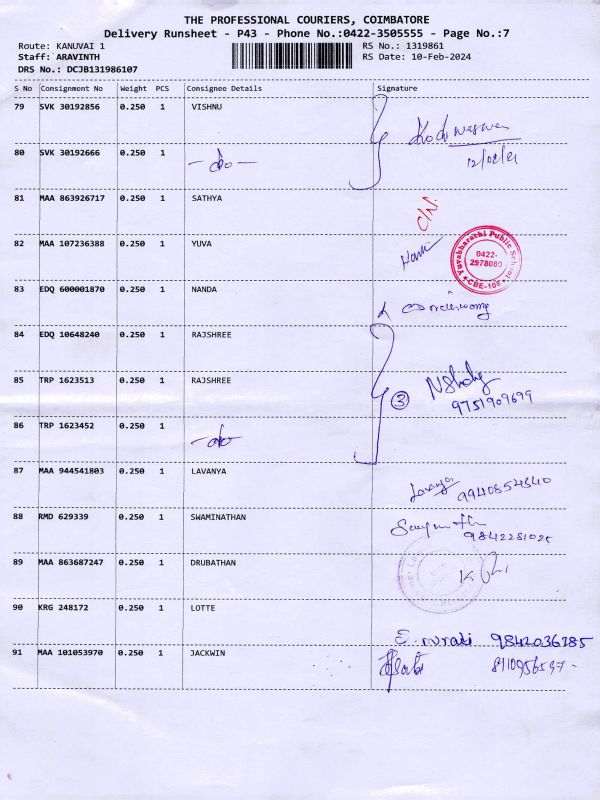 THE PROFESSIONAL COURIERS, COIMBATORE
Delivery Runsheet - P43 - Phone No.:0422-3505555 - Page No.:7
Route: KANUVAI 1 RS No.: 1319861
Staff: ARAVINTH RS Date: 10-Feb-2024
DRS No.: DCJB131986107
S No Consignment No Weight PCS Consignee Details Signature
79 SVK 30192856 0.250 1 VISHNU
12/02/24
80 SVK 30192666 0.250 1 — do —
81 MAA 863926717 0.250 1 SATHYA
82 MAA 107236388 0.250 1 YUVA
Yuvabharathi Public School
0422-
2978080
CBE-108
83 EDQ 600001870 0.250 1 NANDA
84 EDQ 10648240 0.250 1 RAJSHREE
85 TRP 1623513 0.250 1 RAJSHREE
3
9751909699
86 TRP 1623452 0.250 1 — do —
87 MAA 944541803 0.250 1 LAVANYA
Lavanya 9940854840
88 RMD 629339 0.250 1 SWAMINATHAN
9842281025
89 MAA 863687247 0.250 1 DRUBATHAN
90 KRG 248172 0.250 1 LOTTE
9842036285
91 MAA 101053970 0.250 1 JACKWIN
8110956597